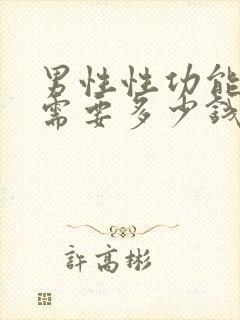 男性性功能
需要多少钱
許高彬